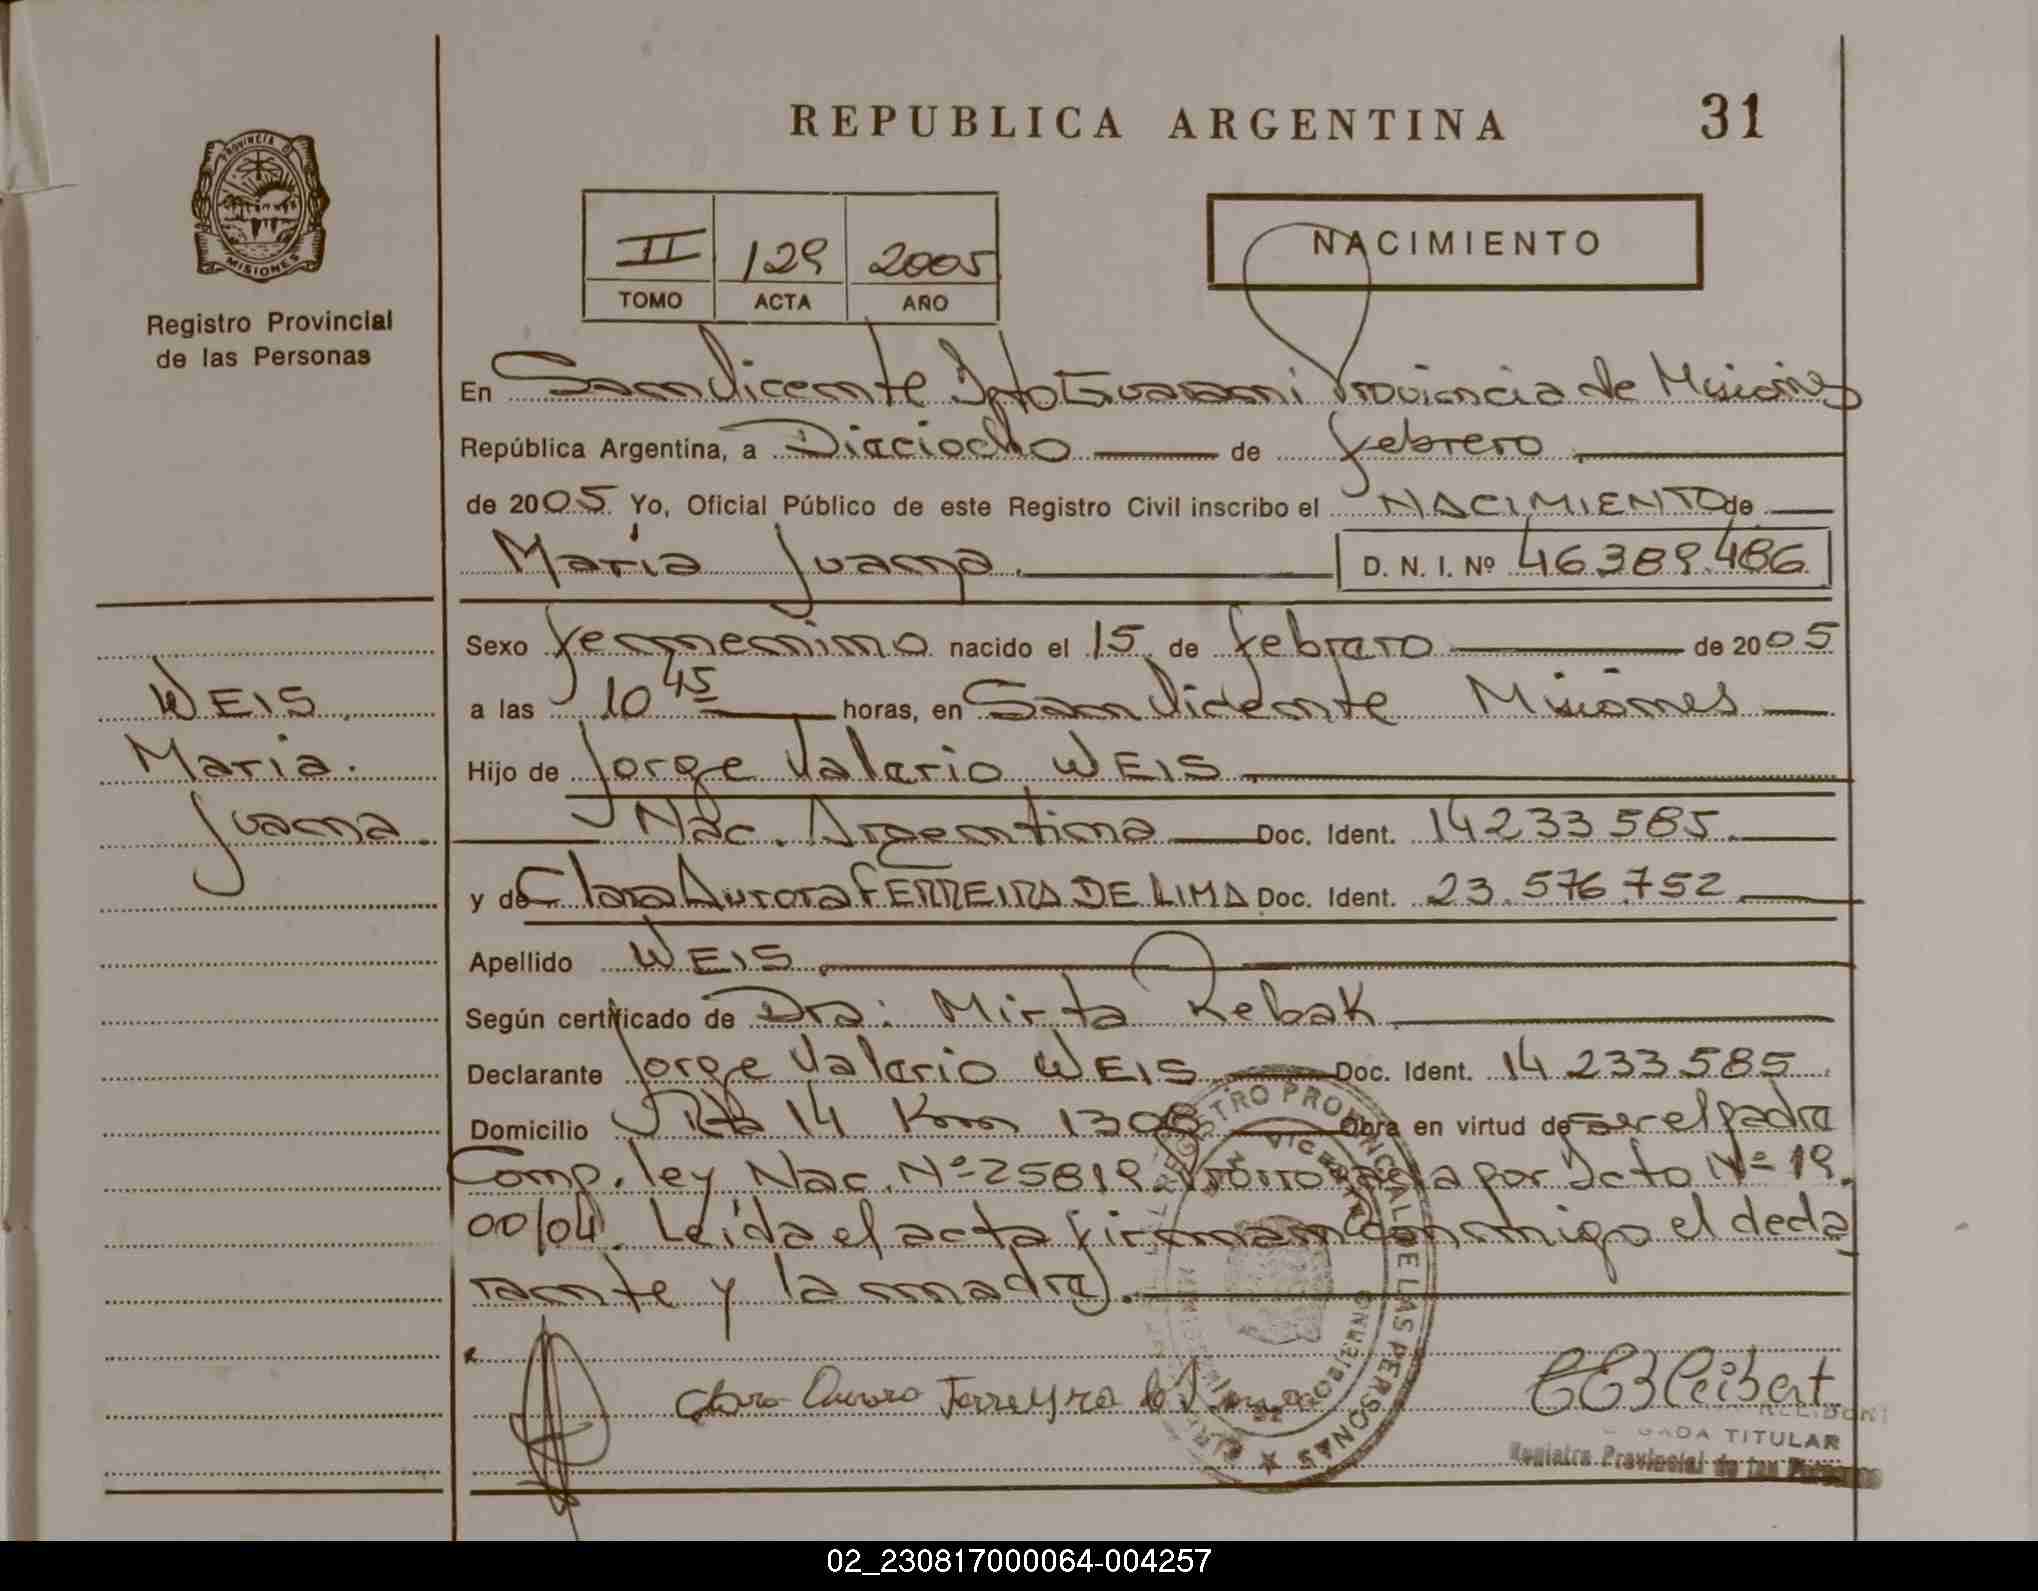 REPUBLICA ARGENTINA 31
PROVINCIA D MISIONES
Registro Provincial
de las Personas
II 129 2005
TOMO ACTA AÑO
NACIMIENTO
En San Vicente Dpto Guarani Provincia de Misiones
República Argentina, a Dieciocho de febrero
de 2005 Yo, Oficial Público de este Registro Civil inscribo el NACIMIENTO de
María Juana D. N. I. Nº 46.389.486
Sexo femenino nacido el 15 de febrero de 2005
a las 10 45 horas, en San Vicente Misiones
Hijo de Jorge Valerio WEIS
Nac. Argentina Doc. Ident. 14.233.585
y de Clara Aurora FERREIRA DE LIMA Doc. Ident. 23.576.752
Apellido WEIS
Según certificado de Dra: Mirta Rebak
Declarante Jorge Valerio WEIS Doc. Ident. 14.233.585
Domicilio Rta 14 Km 1308 Obra en virtud de ser el padre
Comp. ley Nac. Nº 25819 Prorrogada por Dcto Nº 19.
00/04. Leída el acta firman conmigo el decla
rante y la madre.
WEIS
Maria.
Juana.
Clara Aurora Ferreyra de Lima
REGISTRO PROVINCIAL DE LAS PERSONAS
SAN VICENTE
TITULAR
Registro Provincial de las Personas
02_230817000064-004257